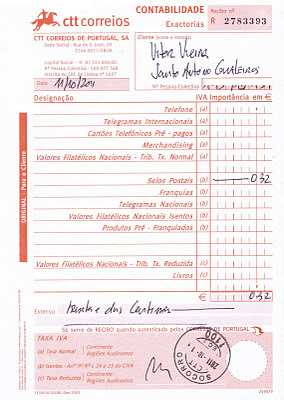 ctt correios
CONTABILIDADE
Exactorias
Recibo nº
R 2783393
CTT CORREIOS DE PORTUGAL, SA
Sede Social - Rua de S. José, 20
Cliente (nome e morada)
Vitor Vieira
Santo António Cavaleiros
Nº Pessoa Colectiva
Data 11/10/2011
Designação IVA Importância em €
Telefone (a)
Telegramas Internacionais (a)
Cartões Telefónicos Pré - pagos (a)
Merchandising (a)
Valores Filatélicos Nacionais - Trib. Tx. Normal (a)
Selos Postais (b) 0,32
Franquias (b)
Telegramas Nacionais (b)
Valores Filatélicos Nacionais Isentos (b)
Produtos Pré - Franquiados (b)
Valores Filatélicos Nacionais - Trib. Tx. Reduzida (c)
Livros (c)
€ 0,32
Extenso trinta e dois Centimos
Só serve de RECIBO quando autenticado pelos CORREIOS DE PORTUGAL
TAXA IVA
(a) Taxa Normal Continente
Regiões Autónomas
(b) Isentos - Artº 9º Nº 24 e 25 do CIVA
(c) Taxa Reduzida Continente
Regiões Autónomas
1100
CTT
SOCORRO
ORIGINAL - Para o Cliente